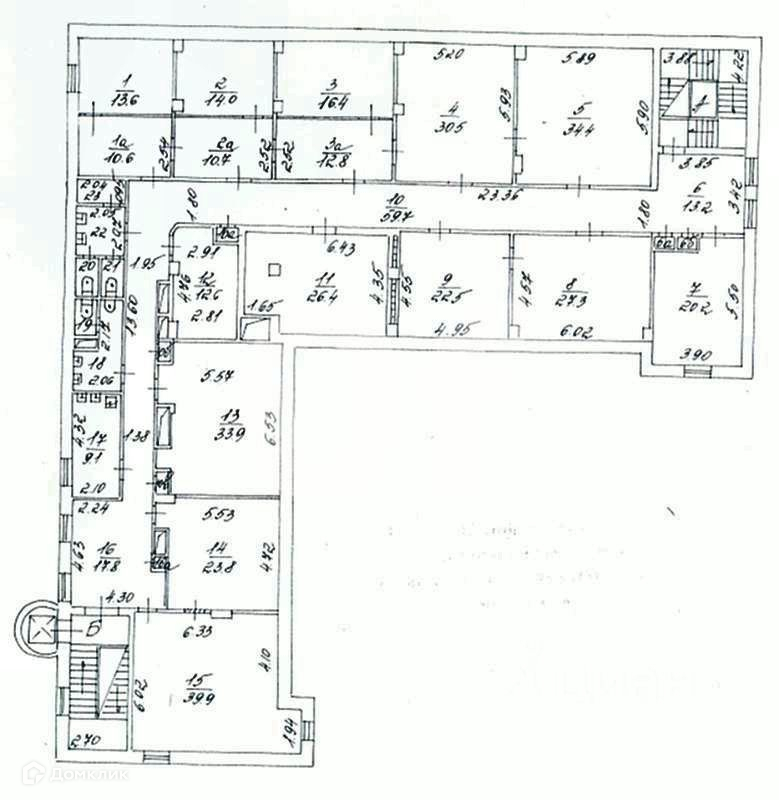 5.20
5.89
3.88
4.22
1
13.6
2
14.0
3
16.4
4
30.5
5.93
5
34.4
5.90
А
1а
10.6
2.54
2а
10.7
2.52
2.52
3а
12.8
3.85
2.04
23
.095
10
59.7
23.36
6
13.2
3.42
1.80
1.80
2.05
22
2.07
2.91
10а
6.43
6а
6б
20
21
1.95
4.76
12
12.6
11
26.4
4.35
4.55
9
22.5
4.57
8
27.3
7
20.2
5.50
1.65
2.81
19
2.17
13.60
4.95
6.02
18
2.06
3.90
5.57
4.32
17
9.1
1.38
13
33.9
6.53
2.10
2.24
5.53
4.63
16
17.8
14
23.8
4.72
16а
4.30
Б
6.33
4.10
15
39.9
6.02
1.94
2.70
Домклик